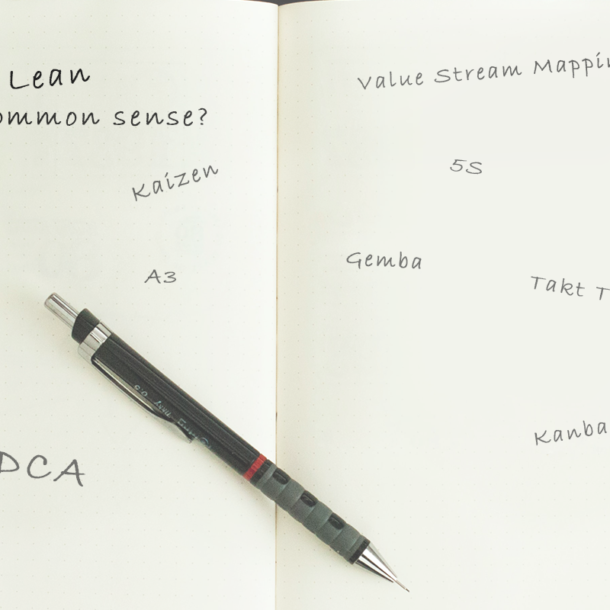 Lean
ommon sense?
Kaizen
A3
DCA
Value Stream Mappin
5S
Gemba
Takt T
Kanba